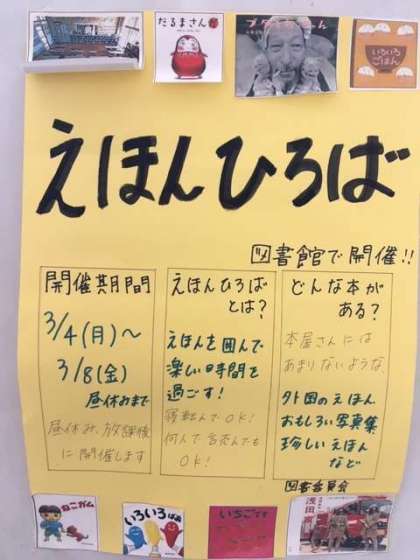 だるまさんが
いろいろごはん
えほんひろば
図書館で開催!!
開催期間
3/4(月)〜
3/8(金)
昼休みまで
昼休み、放課後
に開催します
えほんひろば
とは?
えほんを囲んで
楽しい時間を
過ごす!
寝転んでOK!
何人で読んでも
OK!
どんな本が
ある?
本屋さんには
あまりないような
外国のえほん
おもしろい写真集
珍しいえほん
など
図書委員会
ねこガム
いろいろばあ
いちごです
浅田